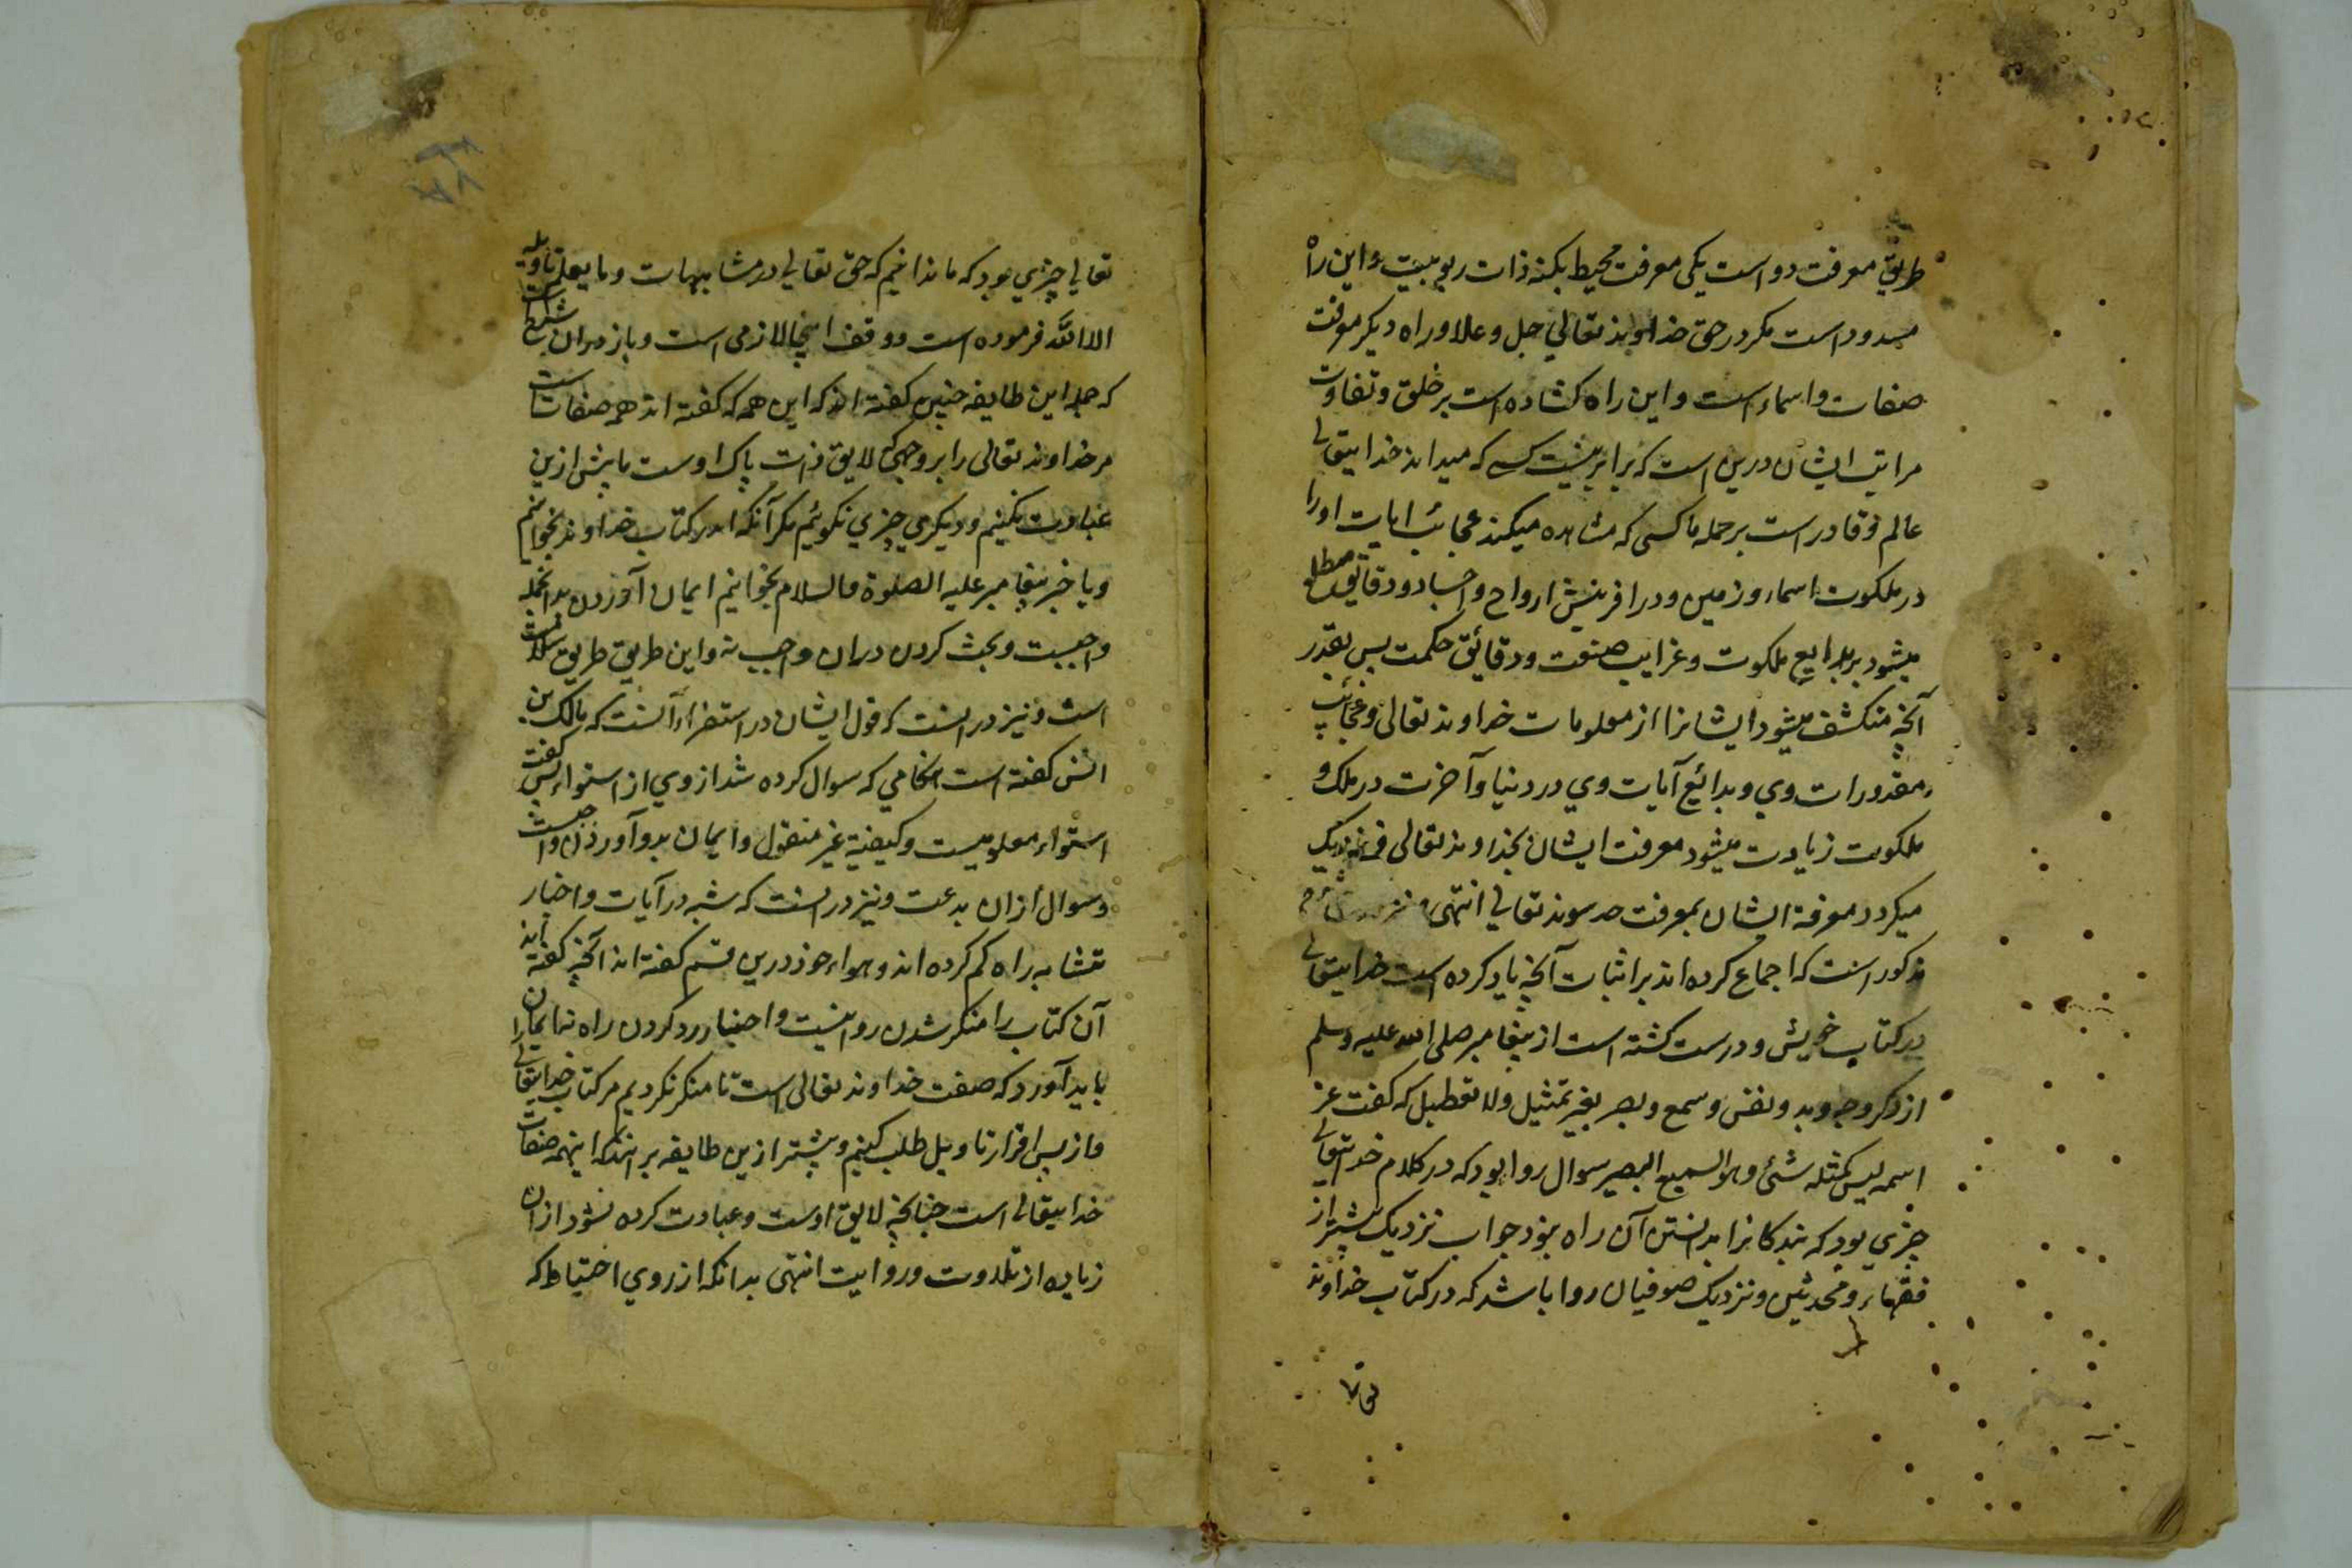 طریق معرفت دو است یکی معرفت محیط بکنه ذات ربوبیت و این راه
مسدود است مکر در حق خداوند تعالی جل و علا و راه دیکر معرفت
صفات و اسماء است و این راه کشاده است بر خلق و تفاوت
مراتب ایشان درین است که برابر نیست کسے که میداند خدایتعالی
عالم و قادر است بر جمله با کسی که مشاهده میکند عجائب ایات او را
در ملکوت اسماء و زمین و در افرینش ارواح و اجساد و دقایق مطلع
میشود بر بدایع ملکوت و غرایب صنعت و دقائق حکمت پس بقدر
آنچه منکشف میشود ایشانرا از معلومات خداوند تعالی و عجائب
مقدورات وی و بدائع آیات وی در دنیا و آخرت در ملک و
ملکوت زیادت میشود معرفت ایشان بخداوند تعالی
میکردد معرفة ایشان بمعرفت تعالی انتهی
مذکور است که اجماع کرده اند بر اثبات آنچه یاد کرده است خدایتعالی
در کتاب خویش و درست کشته است از پیغامبر صلی الله علیه وسلم
از ذکر وجه وید و نفس و سمع و بصر بغیر تمثیل ولا تعطیل که کفت عز
اسمه لیس کمثله شئ وهو السمیع البصیر سوال روا بود که در کلام خدایتعالی
چیزی بود که بندکانرا بدانستن آن راه نبود جواب نزدیک بیشتر از
فقهاء و محدثین و نزدیک صوفیان روا باشد که در کتاب خداوند
تعالی چیزی بود که ما ندانیم که حق تعالی در متشابهات وما یعلم تاویله
الا الله فرموده است و وقف اینجا لازمی است و باز در ان شرح است
که جمله این طایفه چنین کفته اند که این همه که کفته اند همه صفات است
مر خداوند تعالی را بر وجهی که لایق ذات پاک اوست ما بیش ازین
عبادت نکنیم و دیکری چیزی نکوئیم مکر آنکه اندر کتاب خداوند بخوانیم
و یا خبر پیغامبر علیه الصلوة والسلام بخوانیم ایمان آوردن بدانجمله
واجبست و بحث کردن دران واجب نه و این طریق طریق سلامت
است و نیز در است که قول ایشان در استقراء آنست که مالک بن
انس کفته است هنکامی که سوال کرده شد از وی از استواء پس کفت
استواء معلومیست و کیفیة غیر منقول و ایمان بدو آوردن واجبست
و سوال ازان بدعت و نیز در است که شبه در آیات و اخبار
متشابه راه کم کرده اند و هواء خود درین قسم کفته اند آنچه کفته اند
آن کتاب را منکر شدن روا نیست و اخبار رد کردن راه نه ایمان را
باید آورد که صفت خداوند تعالی است تا منکر نکردیم مر کتاب خدایتعالی
و از پس اقرار تاویل طلب کنیم و بیشتر ازین طایفه برانند که اینهمه صفات
خدایتعالی است چنانچه لایق اوست و عبادت کرده نشود ازان
زیاده از تلاوت و روایت انتهی بدانکه از روی احتیاط که